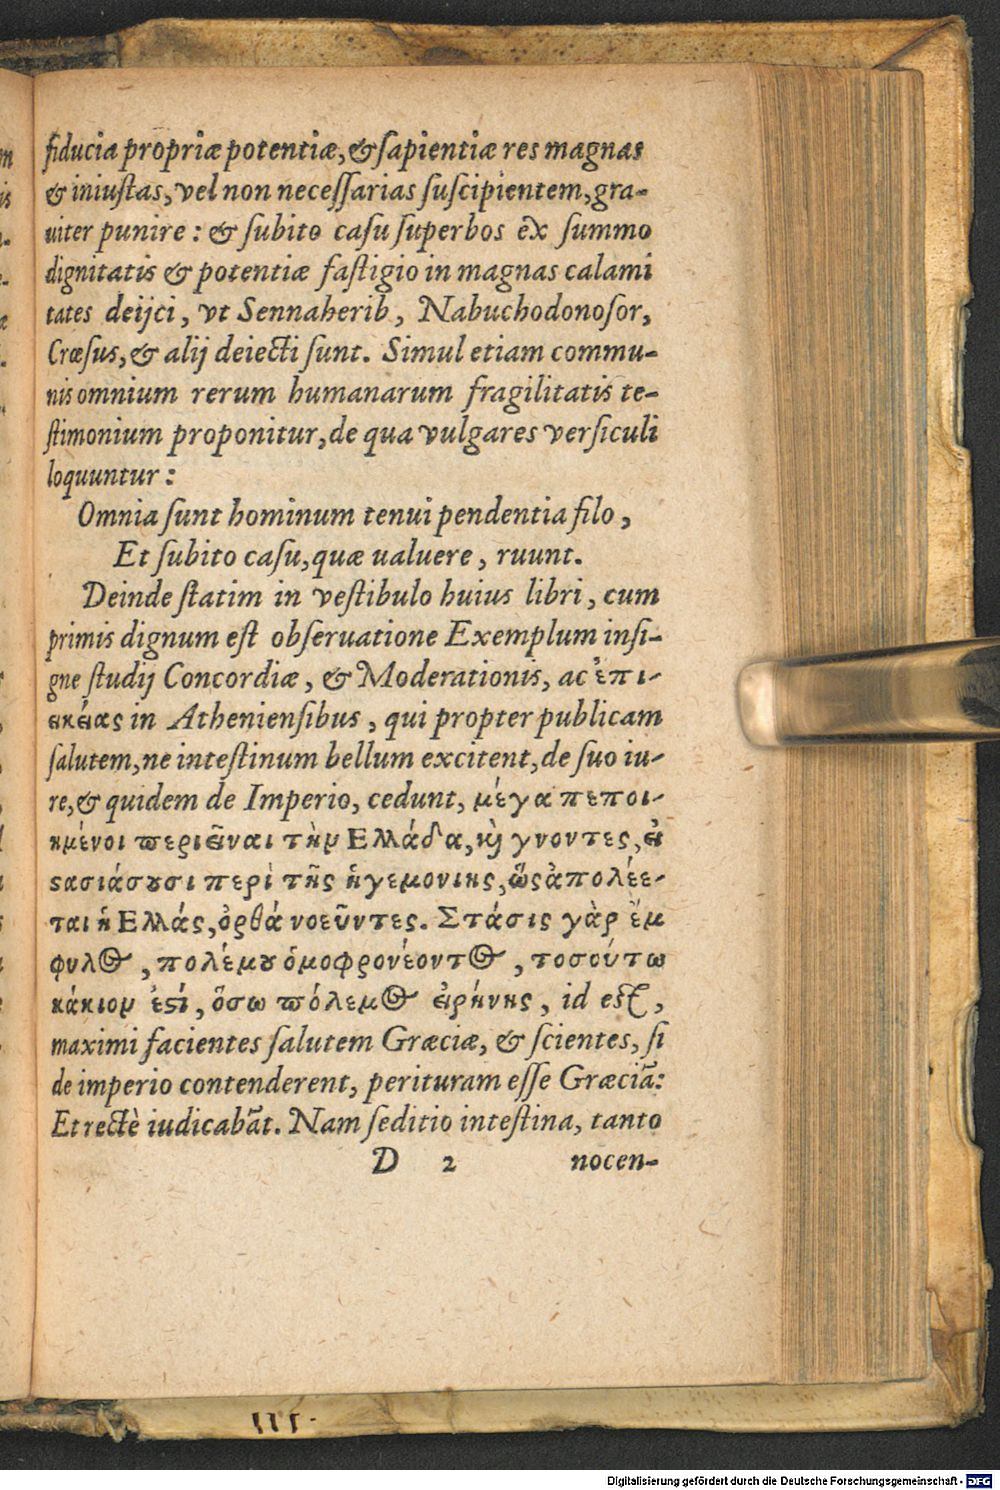 fiducia propriæ potentiæ, & sapientiæ res magnas
& iniustas, vel non necessarias suscipientem, gra-
uiter punire : & subito casu superbos ex summo
dignitatis & potentiæ fastigio in magnas calami
tates deijci, vt Sennaherib, Nabuchodonosor,
Crœsus, & alij deiecti sunt. Simul etiam commu-
nis omnium rerum humanarum fragilitatis te-
stimonium proponitur, de qua vulgares versiculi
loquuntur :
Omnia sunt hominum tenui pendentia filo,
Et subito casu, quæ ualuere, ruunt.
Deinde statim in vestibulo huius libri, cum
primis dignum est obseruatione Exemplum insi-
gne studij Concordiæ, & Moderationis, ac ἐπι-
εικείας in Atheniensibus, qui propter publicam
salutem, ne intestinum bellum excitent, de suo iu-
re, & quidem de Imperio, cedunt, μέγα πεποι-
ημένοι περιεῖναι τὴν Ἑλλάδα, καὶ γνοντες, εἰ
στασιάσουσι περὶ τῆς ἡγεμονιης, ὥς ἀπολέε-
ται ἡ Ἑλλάς, ὀρθά νοεῦντες. Στάσις γὰρ ἔμ
φυλος, πολέμου ὁμοφρονέοντος, τοσούτω
κάκιον ἐστί, ὅσω πόλεμος εἰρήνης, id est,
maximi facientes salutem Græciæ, & scientes, si
de imperio contenderent, perituram esse Græciā:
Et rectè iudicabāt. Nam seditio intestina, tanto
D 2 nocen-
III.
Digitalisierung gefördert durch die Deutsche Forschungsgemeinschaft - DFG